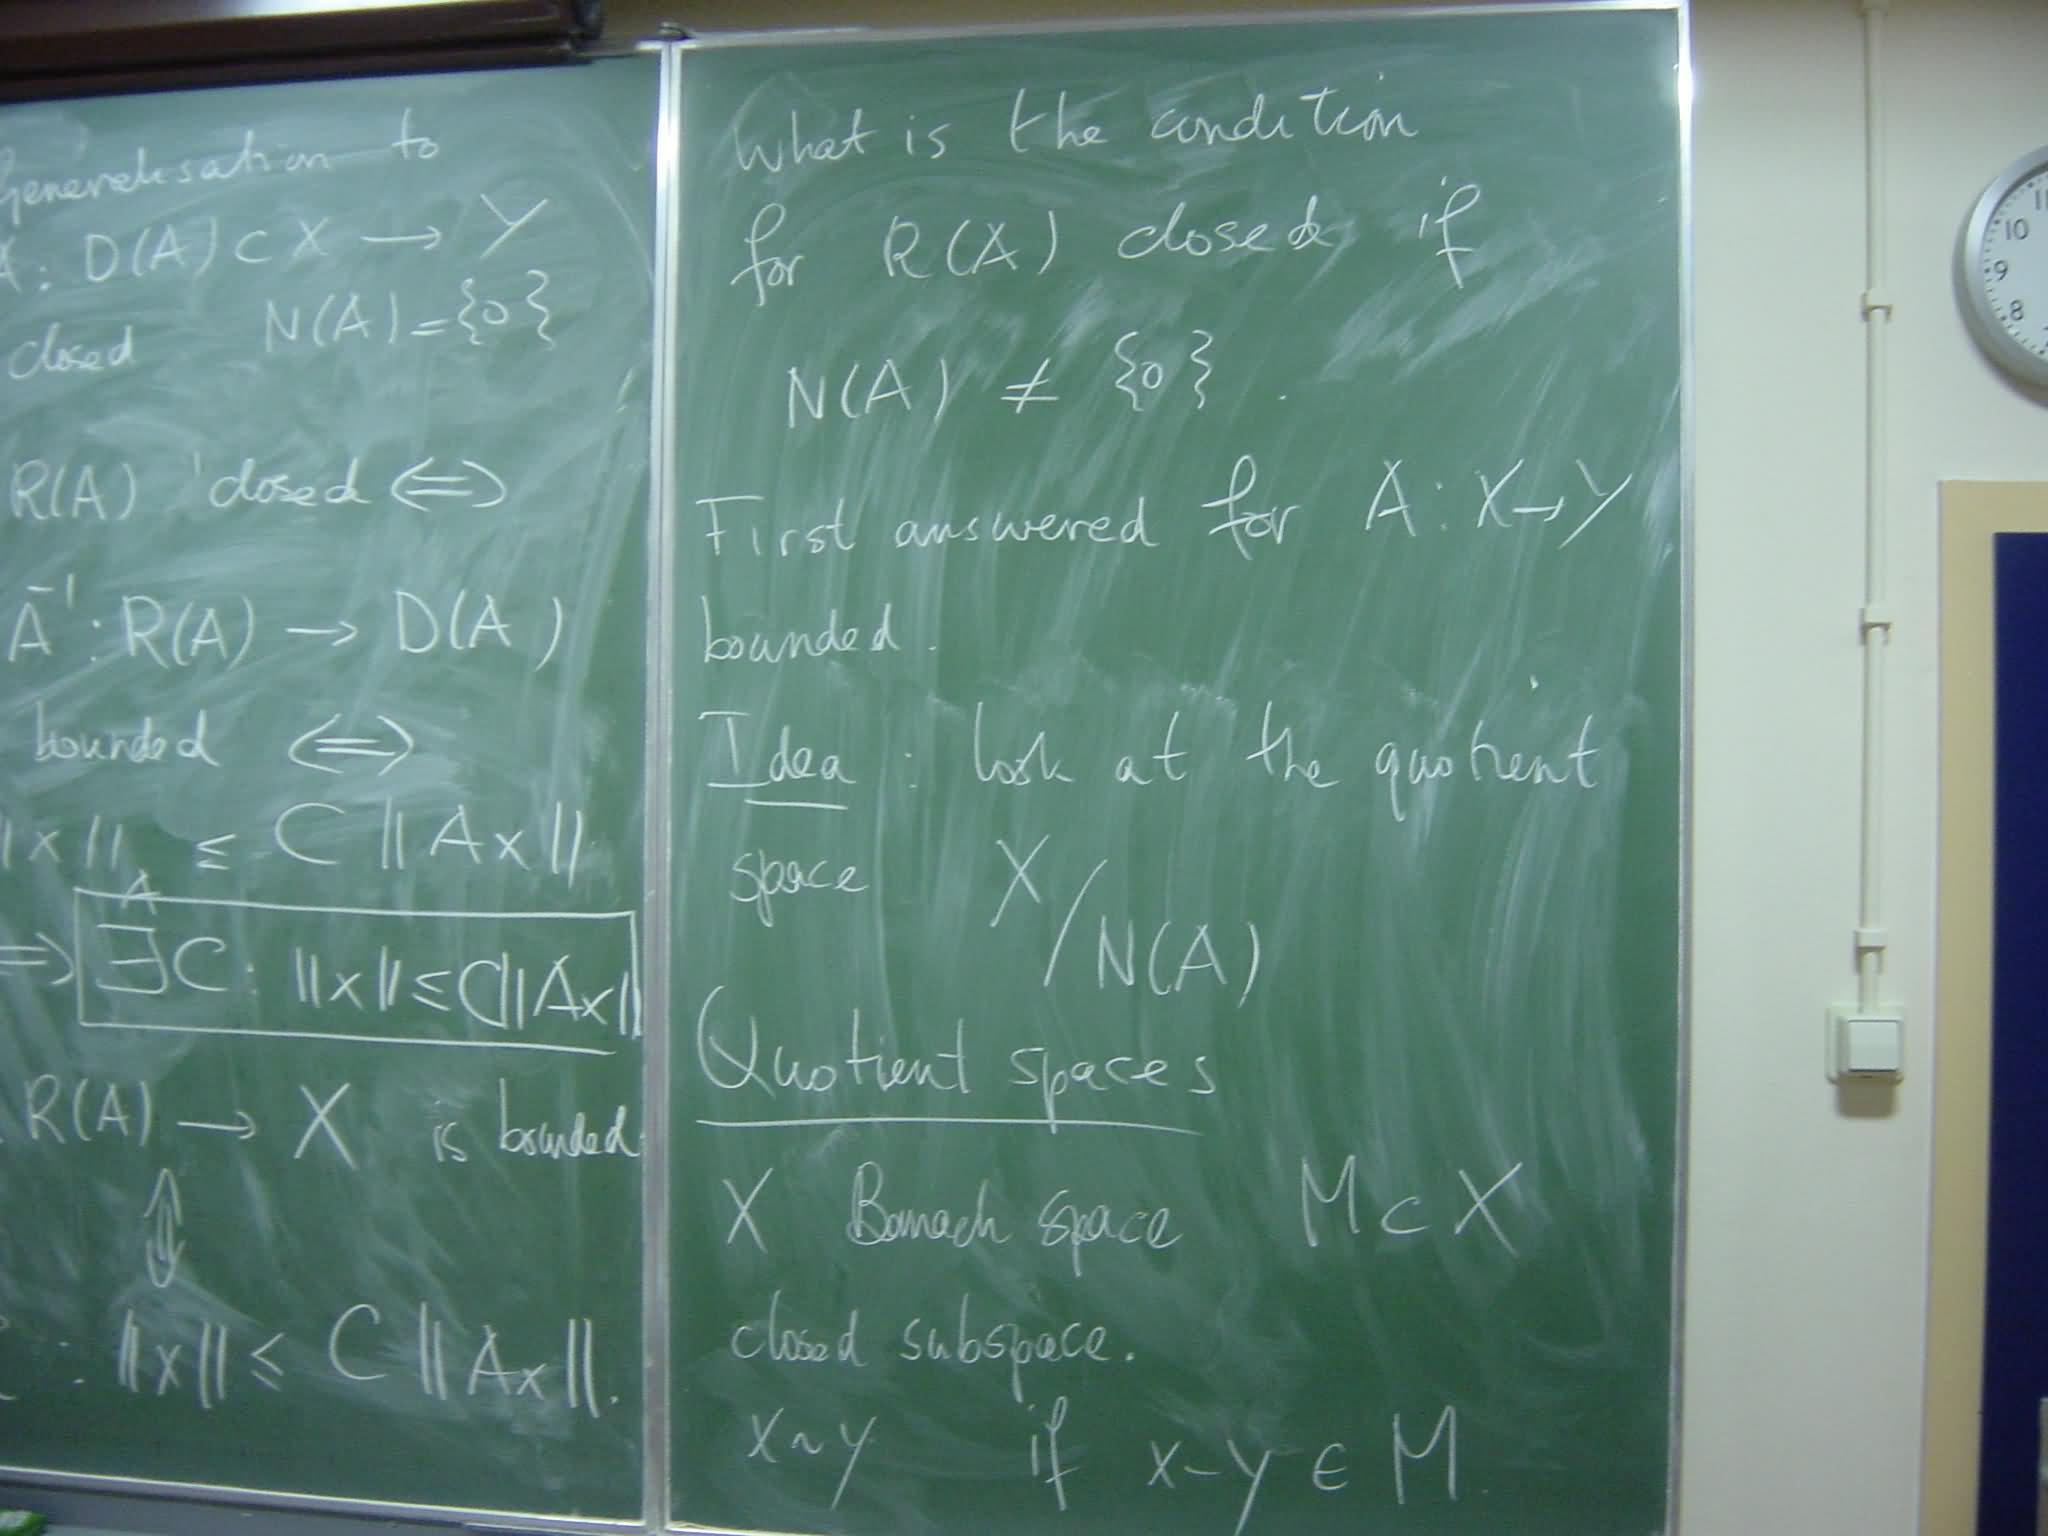 Generalisation to
A: D(A) ⊂ X → Y
closed N(A) = {0}
R(A) closed ⟺
A⁻¹: R(A) → D(A)
bounded ⟺
||x||_A ≤ C ||Ax||
⟹ ∃C: ||x|| ≤ C||Ax||
R(A) → X is bounded
⇕
: ||x|| ≤ C ||Ax||.
What is the condition
for R(A) closed if
N(A) ≠ {0}.
First answered for A: X → Y
bounded.
Idea: look at the quotient
space X/N(A)
Quotient spaces
X Banach space M ⊂ X
closed subspace.
x ~ y if x - y ∈ M.
11
10
9
8